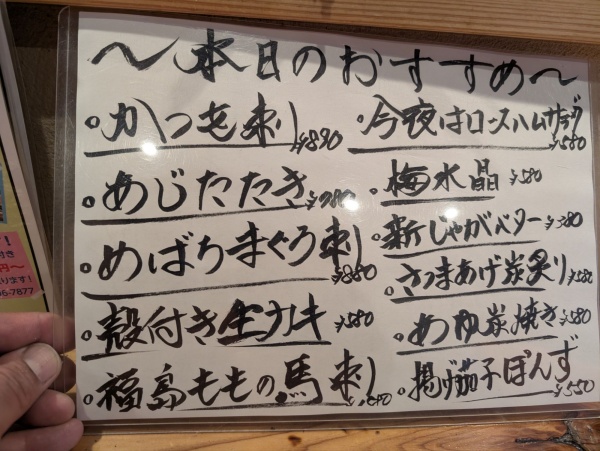 〜本日のおすすめ〜
。かつを刺 ¥890
。あじたたき ¥780
。めばちまぐろ刺 ¥880
。殻付き生カキ ¥580
。福島ももの馬刺
。今夜はロースハムサラダ ¥580
。梅水晶 ¥580
。新じゃがバター ¥380
。さつまあげ炭炙り
。あゆ炭焼き ¥580
。揚げ茄子ぽんず ¥550
付き
円〜
ります!
6-7877